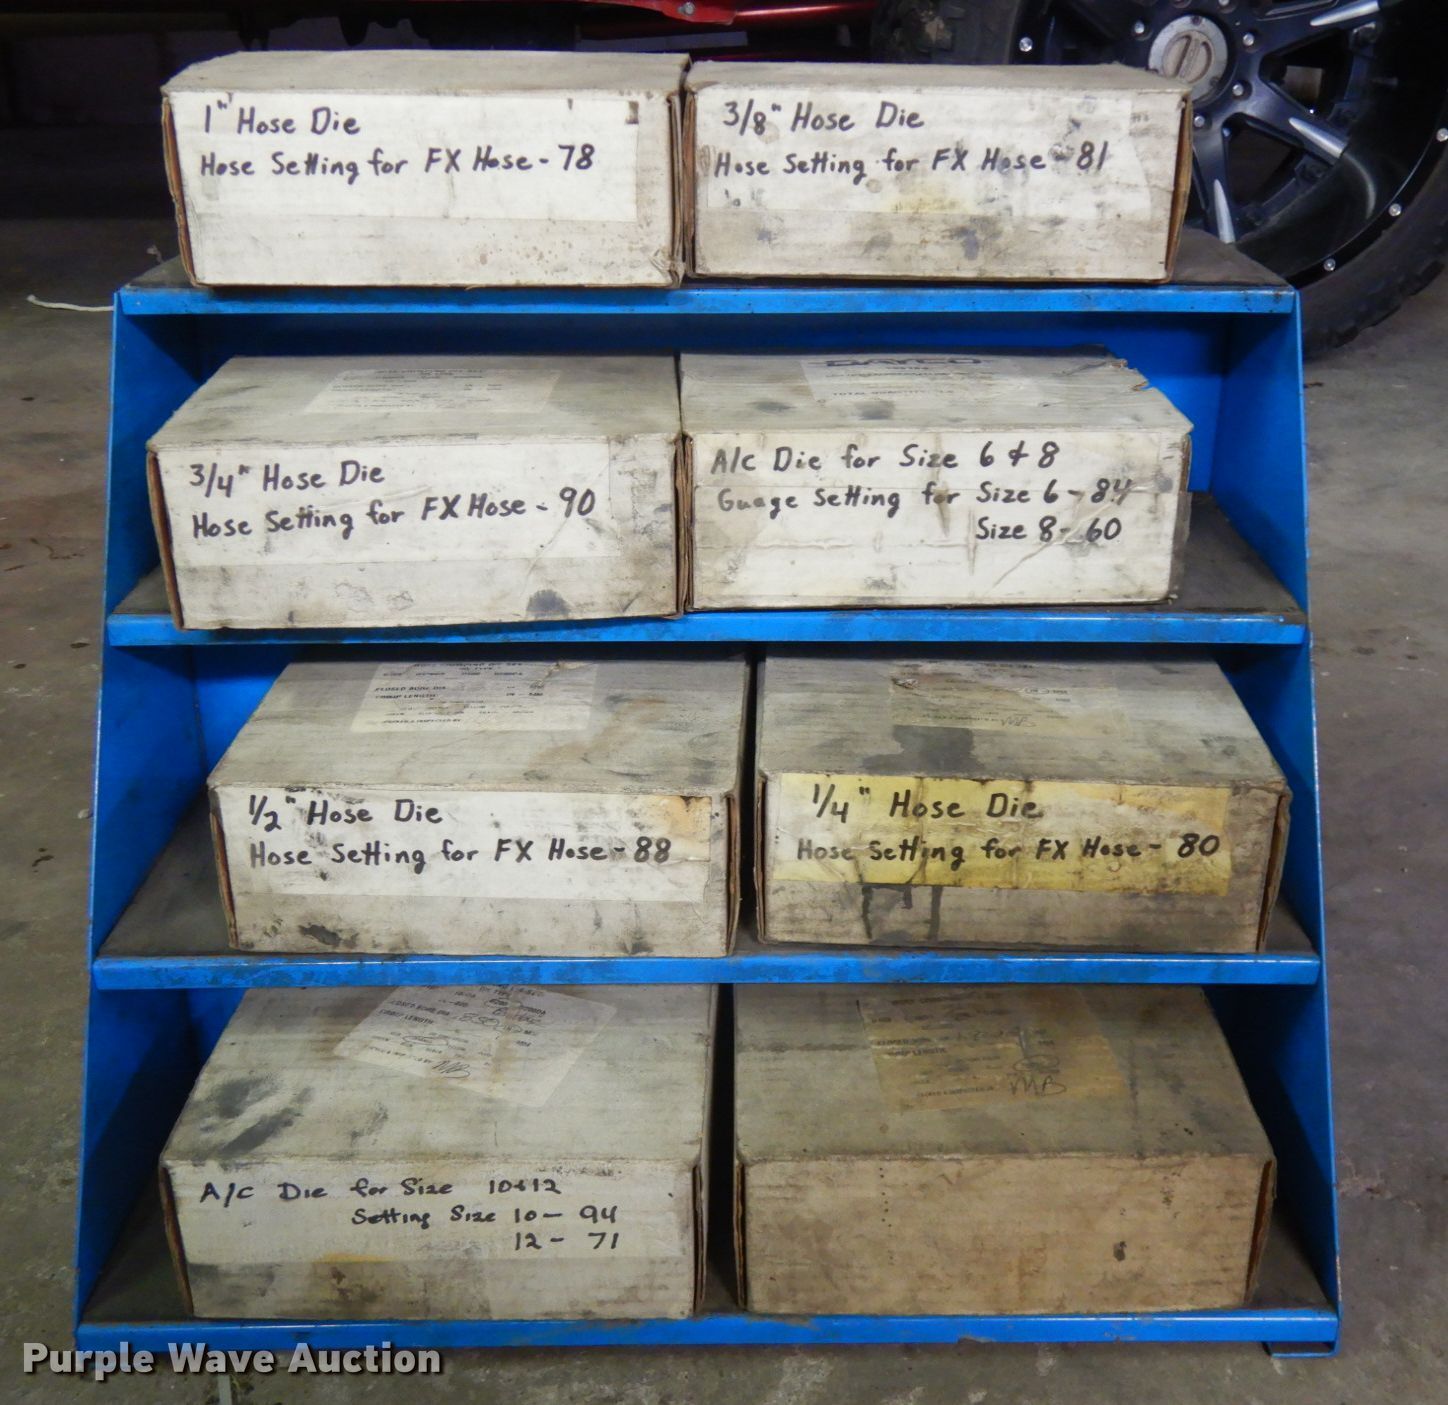 1" Hose Die
Hose Setting for FX Hose - 78
3/8" Hose Die
Hose Setting for FX Hose - 81
3/4" Hose Die
Hose Setting for FX Hose - 90
DAYCO
TOTAL QUANTITY
A/C Die for Size 6 & 8
Guage Setting for Size 6 - 84
Size 8 - 60
CLOSED BORE DIA
CRIMP LENGTH
1/2" Hose Die
Hose Setting for FX Hose - 88
1/4" Hose Die
Hose Setting for FX Hose - 80
CLOSED BORE DIA
CRIMP LENGTH
MB
MB
A/C Die for Size 10&12
Setting Size 10 - 94
12 - 71
Purple Wave Auction